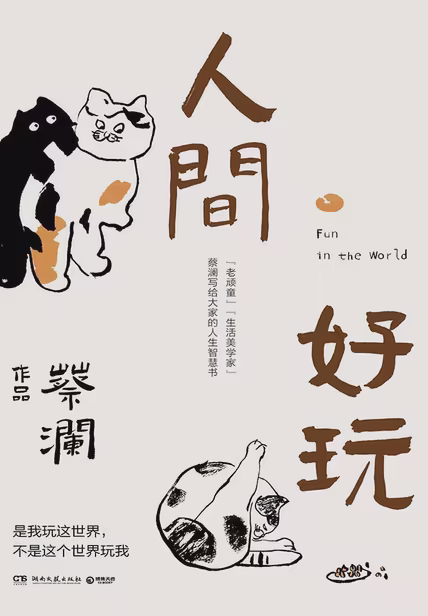 人間
好玩
Fun
in the World
「老顽童」「生活美学家」
蔡澜写给大家的人生智慧书
蔡瀾
作品
是我玩这世界,
不是这个世界玩我
湖南文艺出版社
博集天卷
CS-BOOKY